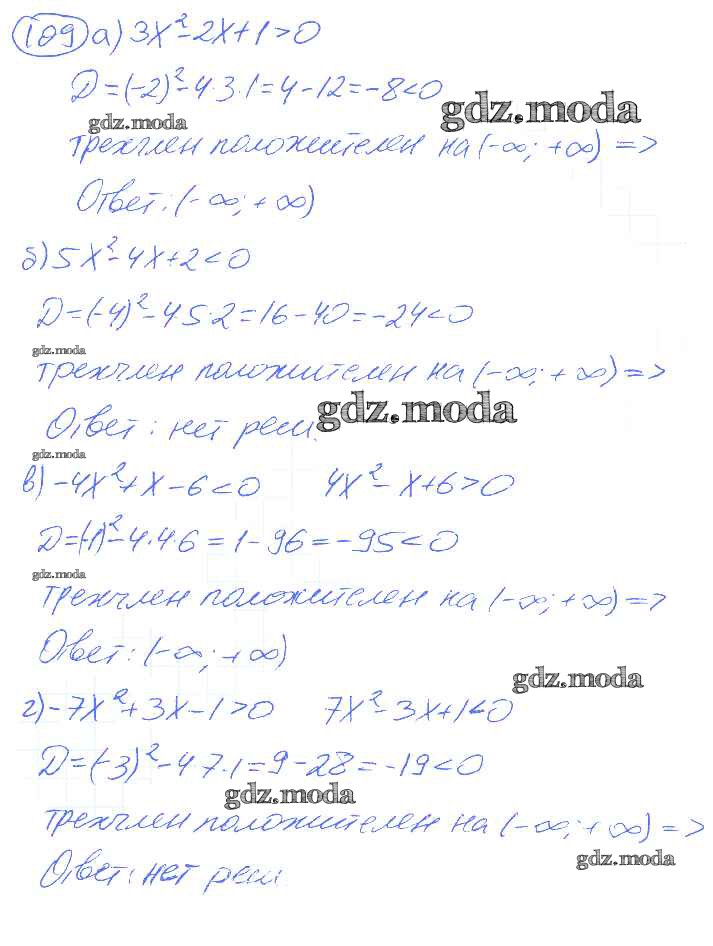 109 а) 3x²-2x+1>0
D=(-2)²-4·3·1=4-12=-8<0
gdz.moda
gdz.moda
трехчлен положителен на (-∞; +∞) =>
Ответ: (-∞; +∞)
б) 5x²-4x+2<0
D=(-4)²-4·5·2=16-40=-24<0
gdz.moda
трехчлен положителен на (-∞; +∞) =>
gdz.moda
Ответ: нет реш.
gdz.moda
в) -4x²+x-6<0 4x²-x+6>0
D=(-1)²-4·4·6=1-96=-95<0
gdz.moda
трехчлен положителен на (-∞; +∞) =>
Ответ: (-∞; +∞)
gdz.moda
г) -7x²+3x-1>0 7x²-3x+1<0
D=(-3)²-4·7·1=9-28=-19<0
gdz.moda
трехчлен положителен на (-∞; +∞) =>
gdz.moda
Ответ: нет реш.